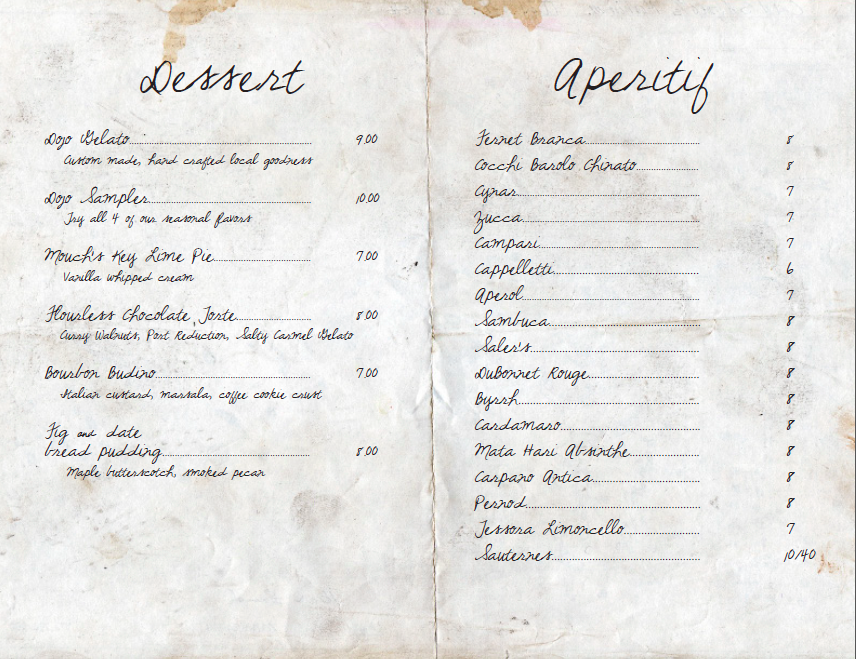 Dessert
Dojo Gelato 9.00
Custom made, hand crafted local goodness
Dojo Sampler 10.00
Try all 4 of our seasonal flavors
Mouch's Key Lime Pie 7.00
Vanilla whipped cream
Flourless Chocolate Torte 8.00
Curry Walnuts, Port Reduction, Salty Carmel Gelato
Bourbon Budino 7.00
Italian custard, marsala, coffee cookie crust
Fig and date
bread pudding 8.00
Maple butterscotch, smoked pecan
Aperitif
Fernet Branca 8
Cocchi Barolo Chinato 8
Cynar 7
Zucca 7
Campari 7
Cappelletti 6
Aperol 7
Sambuca 8
Saler's 8
DuBonnet Rouge 8
Byrrh 8
Cardamaro 8
Mata Hari Absinthe 8
Carpano Antica 8
Pernod 8
Tessora Limoncello 7
Sauternes 10/40